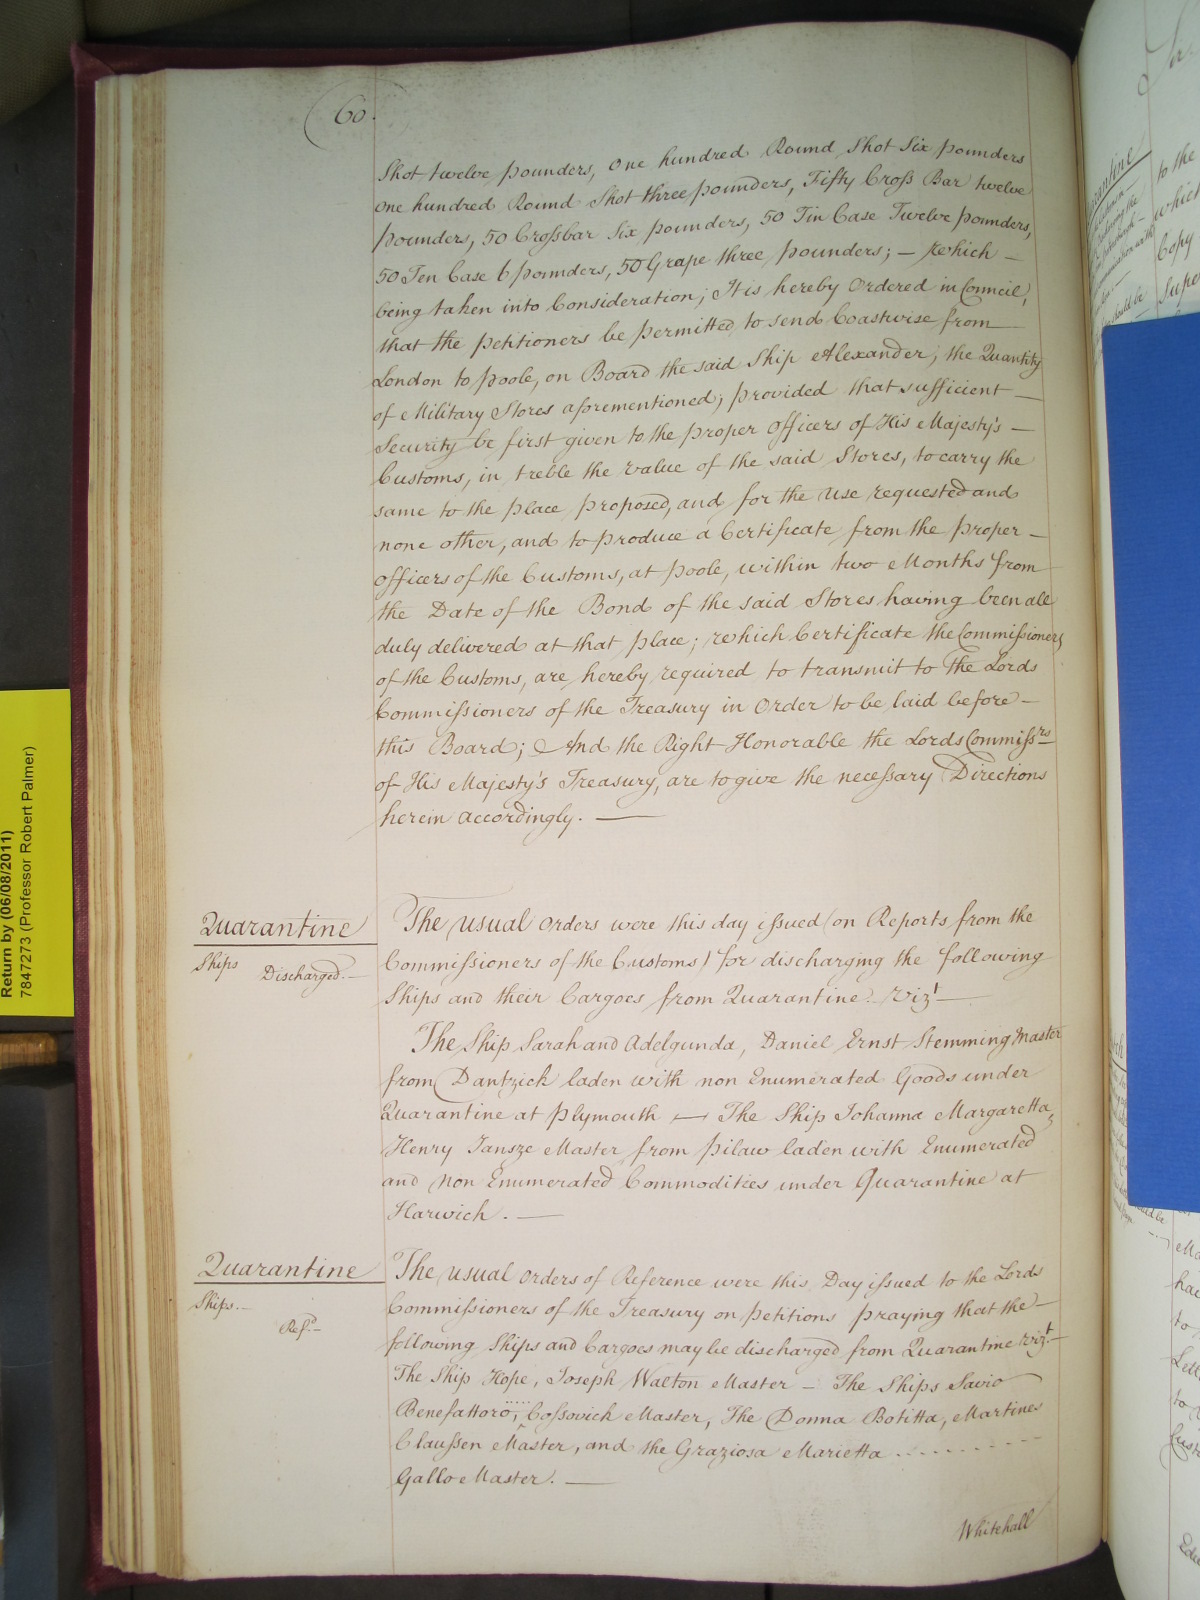 60.
Shot twelve pounders, One hundred Round Shot Six pounders
one hundred Round Shot three pounders, Fifty Cross Bar twelve
pounders, 50 Crossbar Six pounders, 50 Tin Case Twelve pounders,
50 Ten Case 6 pounders, 50 Grape three pounders; – which –
being taken into Consideration; It is hereby Ordered in Council,
that the petitioners be permitted to send Coastwise from
London to Poole, on Board the said Ship Alexander; the Quantity
of Military Stores aforementioned; provided that sufficient –
Security be first given to the proper Officers of His Majesty's –
Customs, in treble the value of the said Stores, to carry the
same to the place proposed, and for the Use requested and
none other, and to produce a Certificate from the proper –
Officers of the Customs, at Poole, within two Months from
the Date of the Bond of the said Stores having been all
duly delivered at that place; which Certificate the Commissioners
of the Customs, are hereby required to transmit to The Lords
Commissioners of the Treasury in Order to be laid before –
this Board; And the Right Honorable the Lords Commissrs
of His Majesty's Treasury, are to give the necessary Directions
herein accordingly. —
Quarantine
Ships Discharged. –
The usual Orders were this day issued (on Reports from the
Commissioners of the Customs) for discharging the following
Ships and their Cargoes from Quarantine. Vizt –
The Ship Sarah and Adelgunda, Daniel Ernst Stemming Master
from Dantzick laden with non Enumerated Goods under
Quarantine at Plymouth — The Ship Johanna Margaretta,
Henry Jansze Master from Pilaw laden with Enumerated
and non Enumerated Commodities under Quarantine at
Harwich. —
Quarantine
Ships. –
Refd. –
The usual Orders of Reference were this Day issued to the Lords
Commissioners of the Treasury on petitions praying that the –
following Ships and Cargoes may be discharged from Quarantine Vizt –
The Ship Hope, Joseph Walton Master – The Ships Savio
Benefattoro, ..... Cossovich Master, The Donna Botitta, Martines
Claussen Master, and the Graziosa Marietta ..........
Gallo Master. —
Whitehall
Return by (06/08/2011)
7847273 (Professor Robert Palmer)
to the
which
Copy